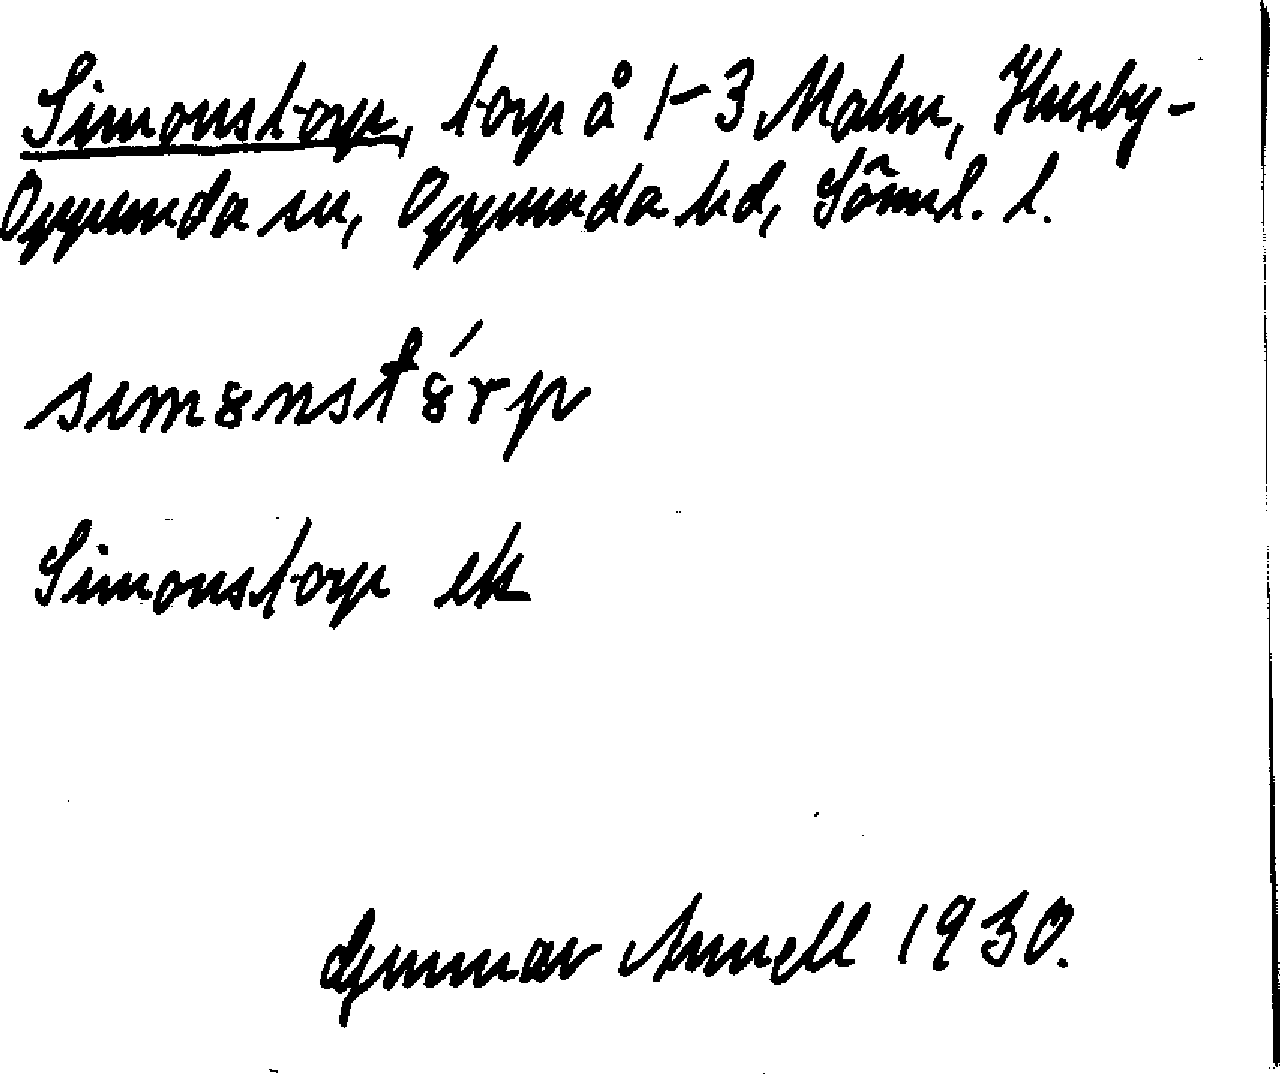 Simonstorp, torp å 1-3 Malm, Husby-
Oppunda sn, Oppunda hd, Söml. l.
simȣnstȣ́rp
Simonstorp ek
Gunnar Annell 1930.